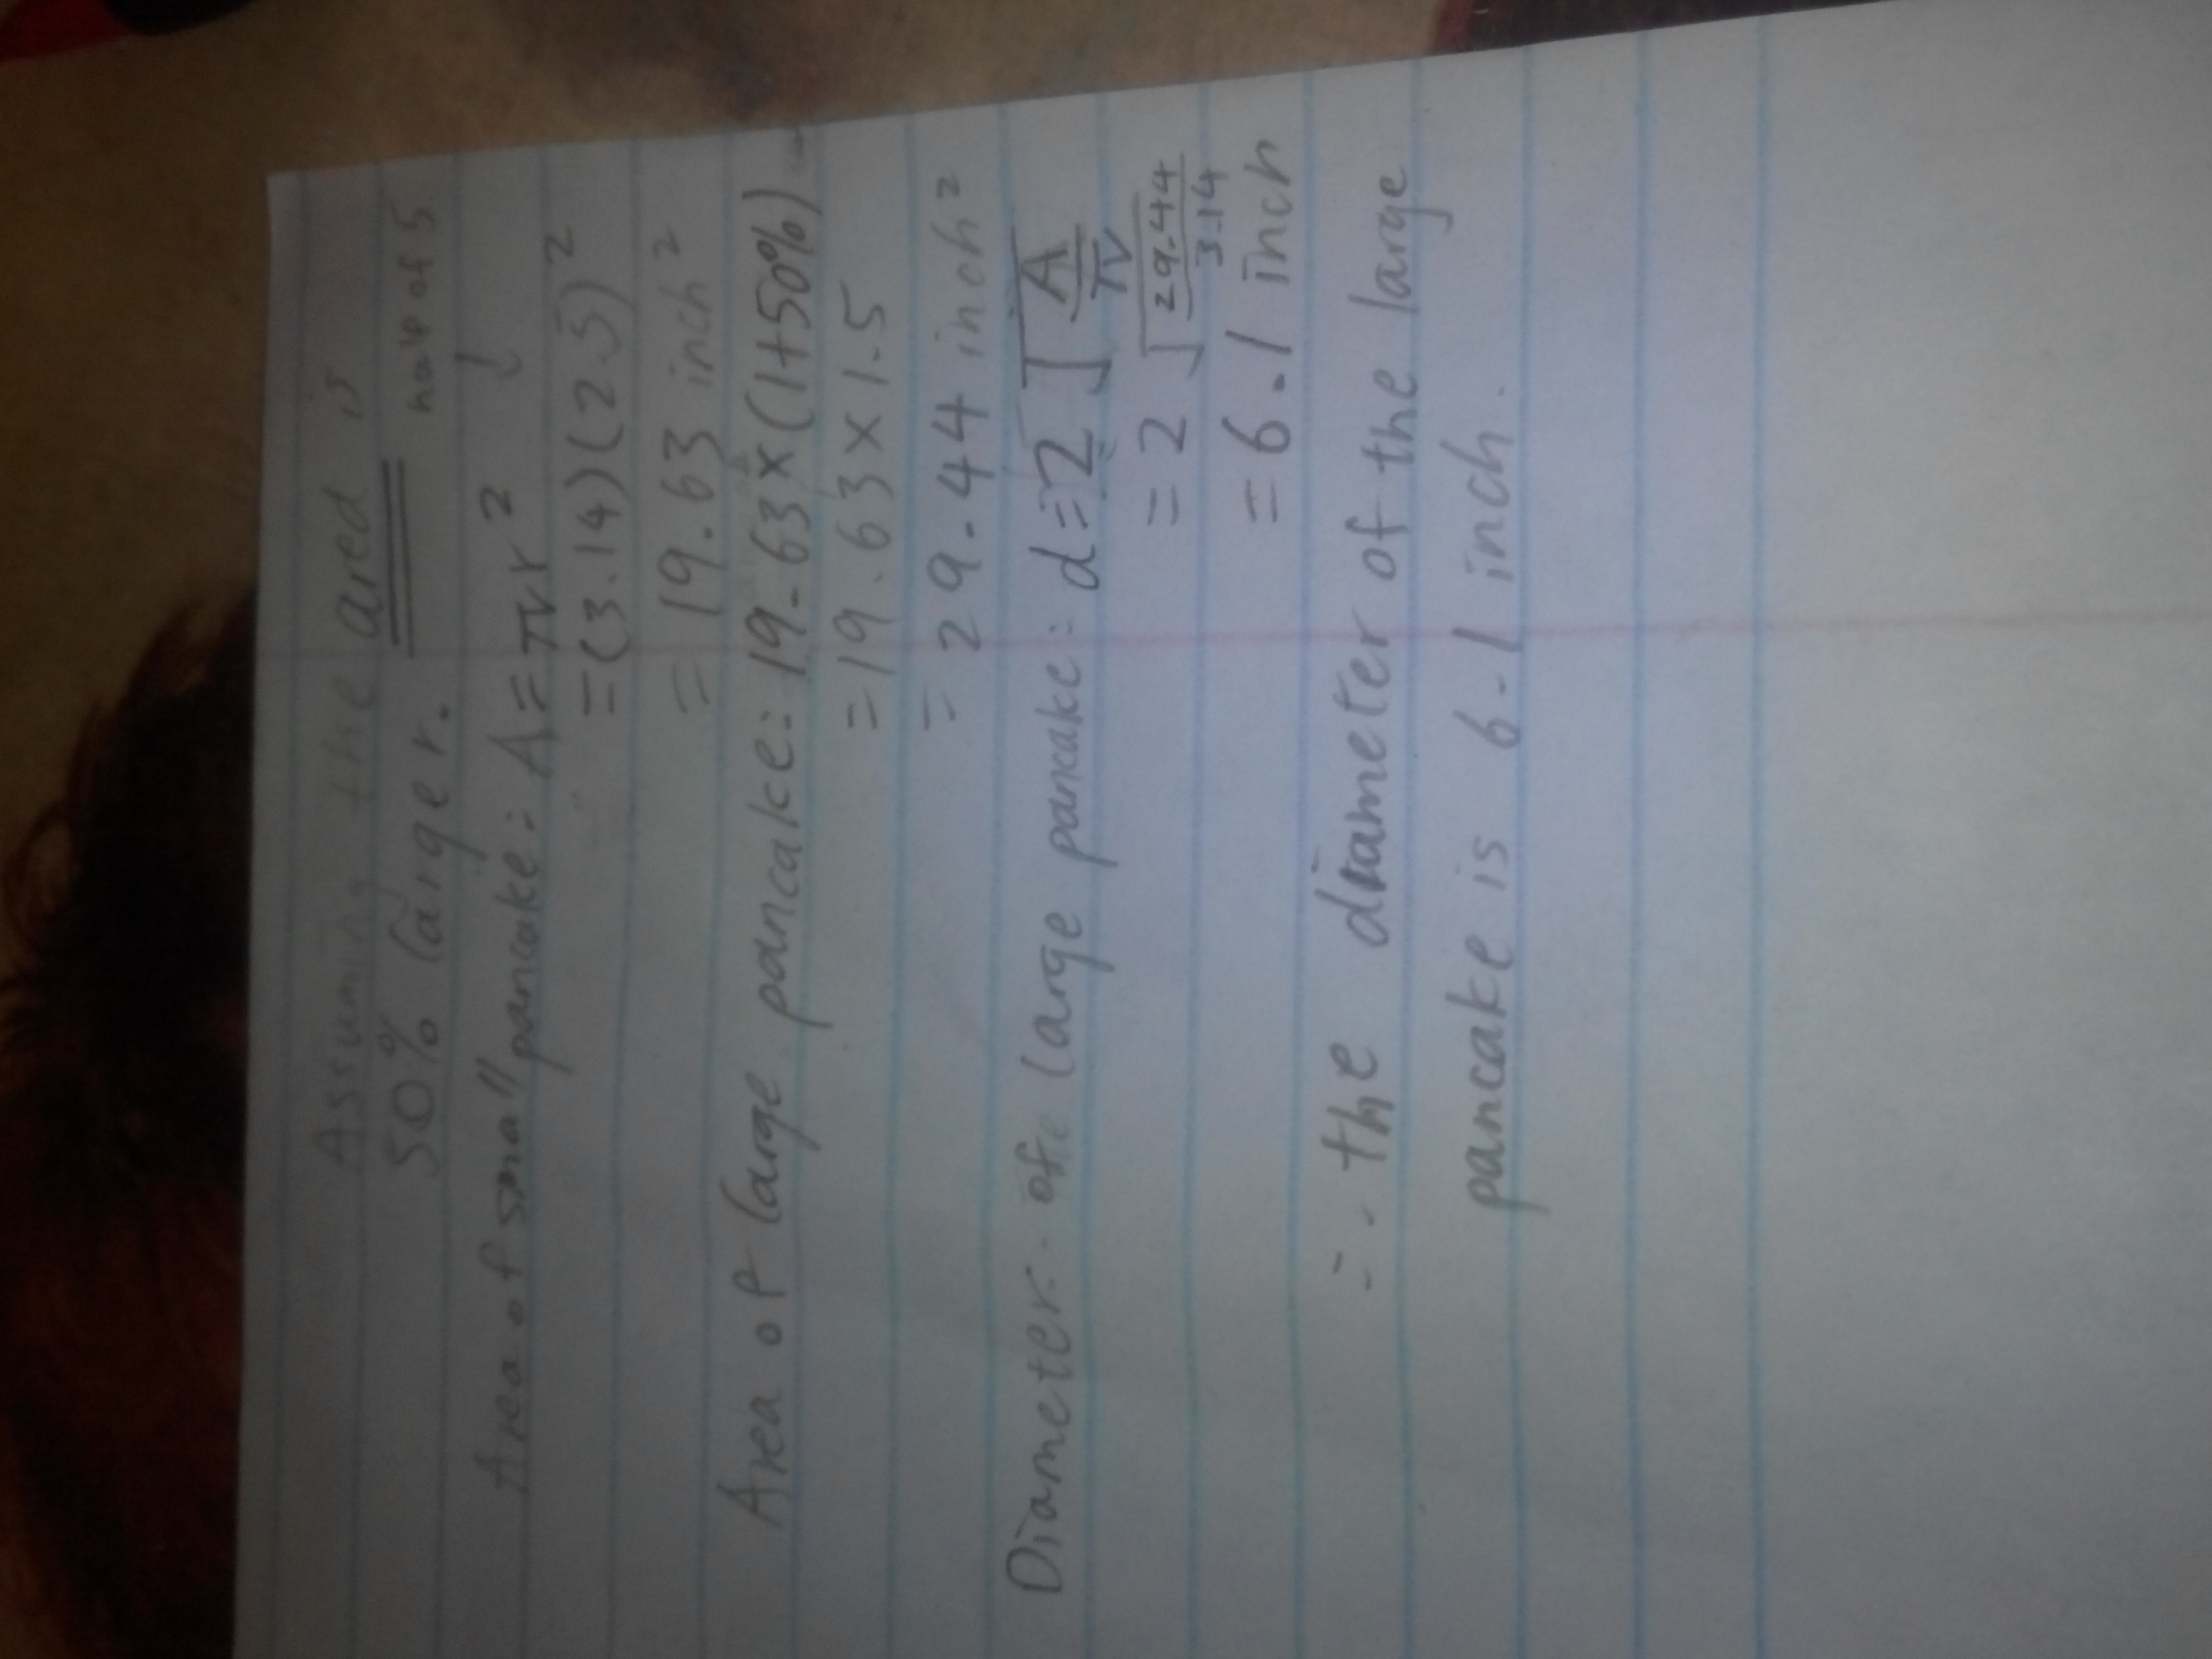 Assuming the area is
50% larger.
half of 5
↓
Area of small pancake: A = πr²
= (3.14)(2.5)²
= 19.63 inch²
Area of large pancake: 19.63 × (1+50%)
= 19.63 × 1.5
= 29.44 inch²
Diameter of large pancake: d = 2√(A/π)
= 2√(29.44/3.14)
= 6.1 inch
∴ the diameter of the large
pancake is 6.1 inch.